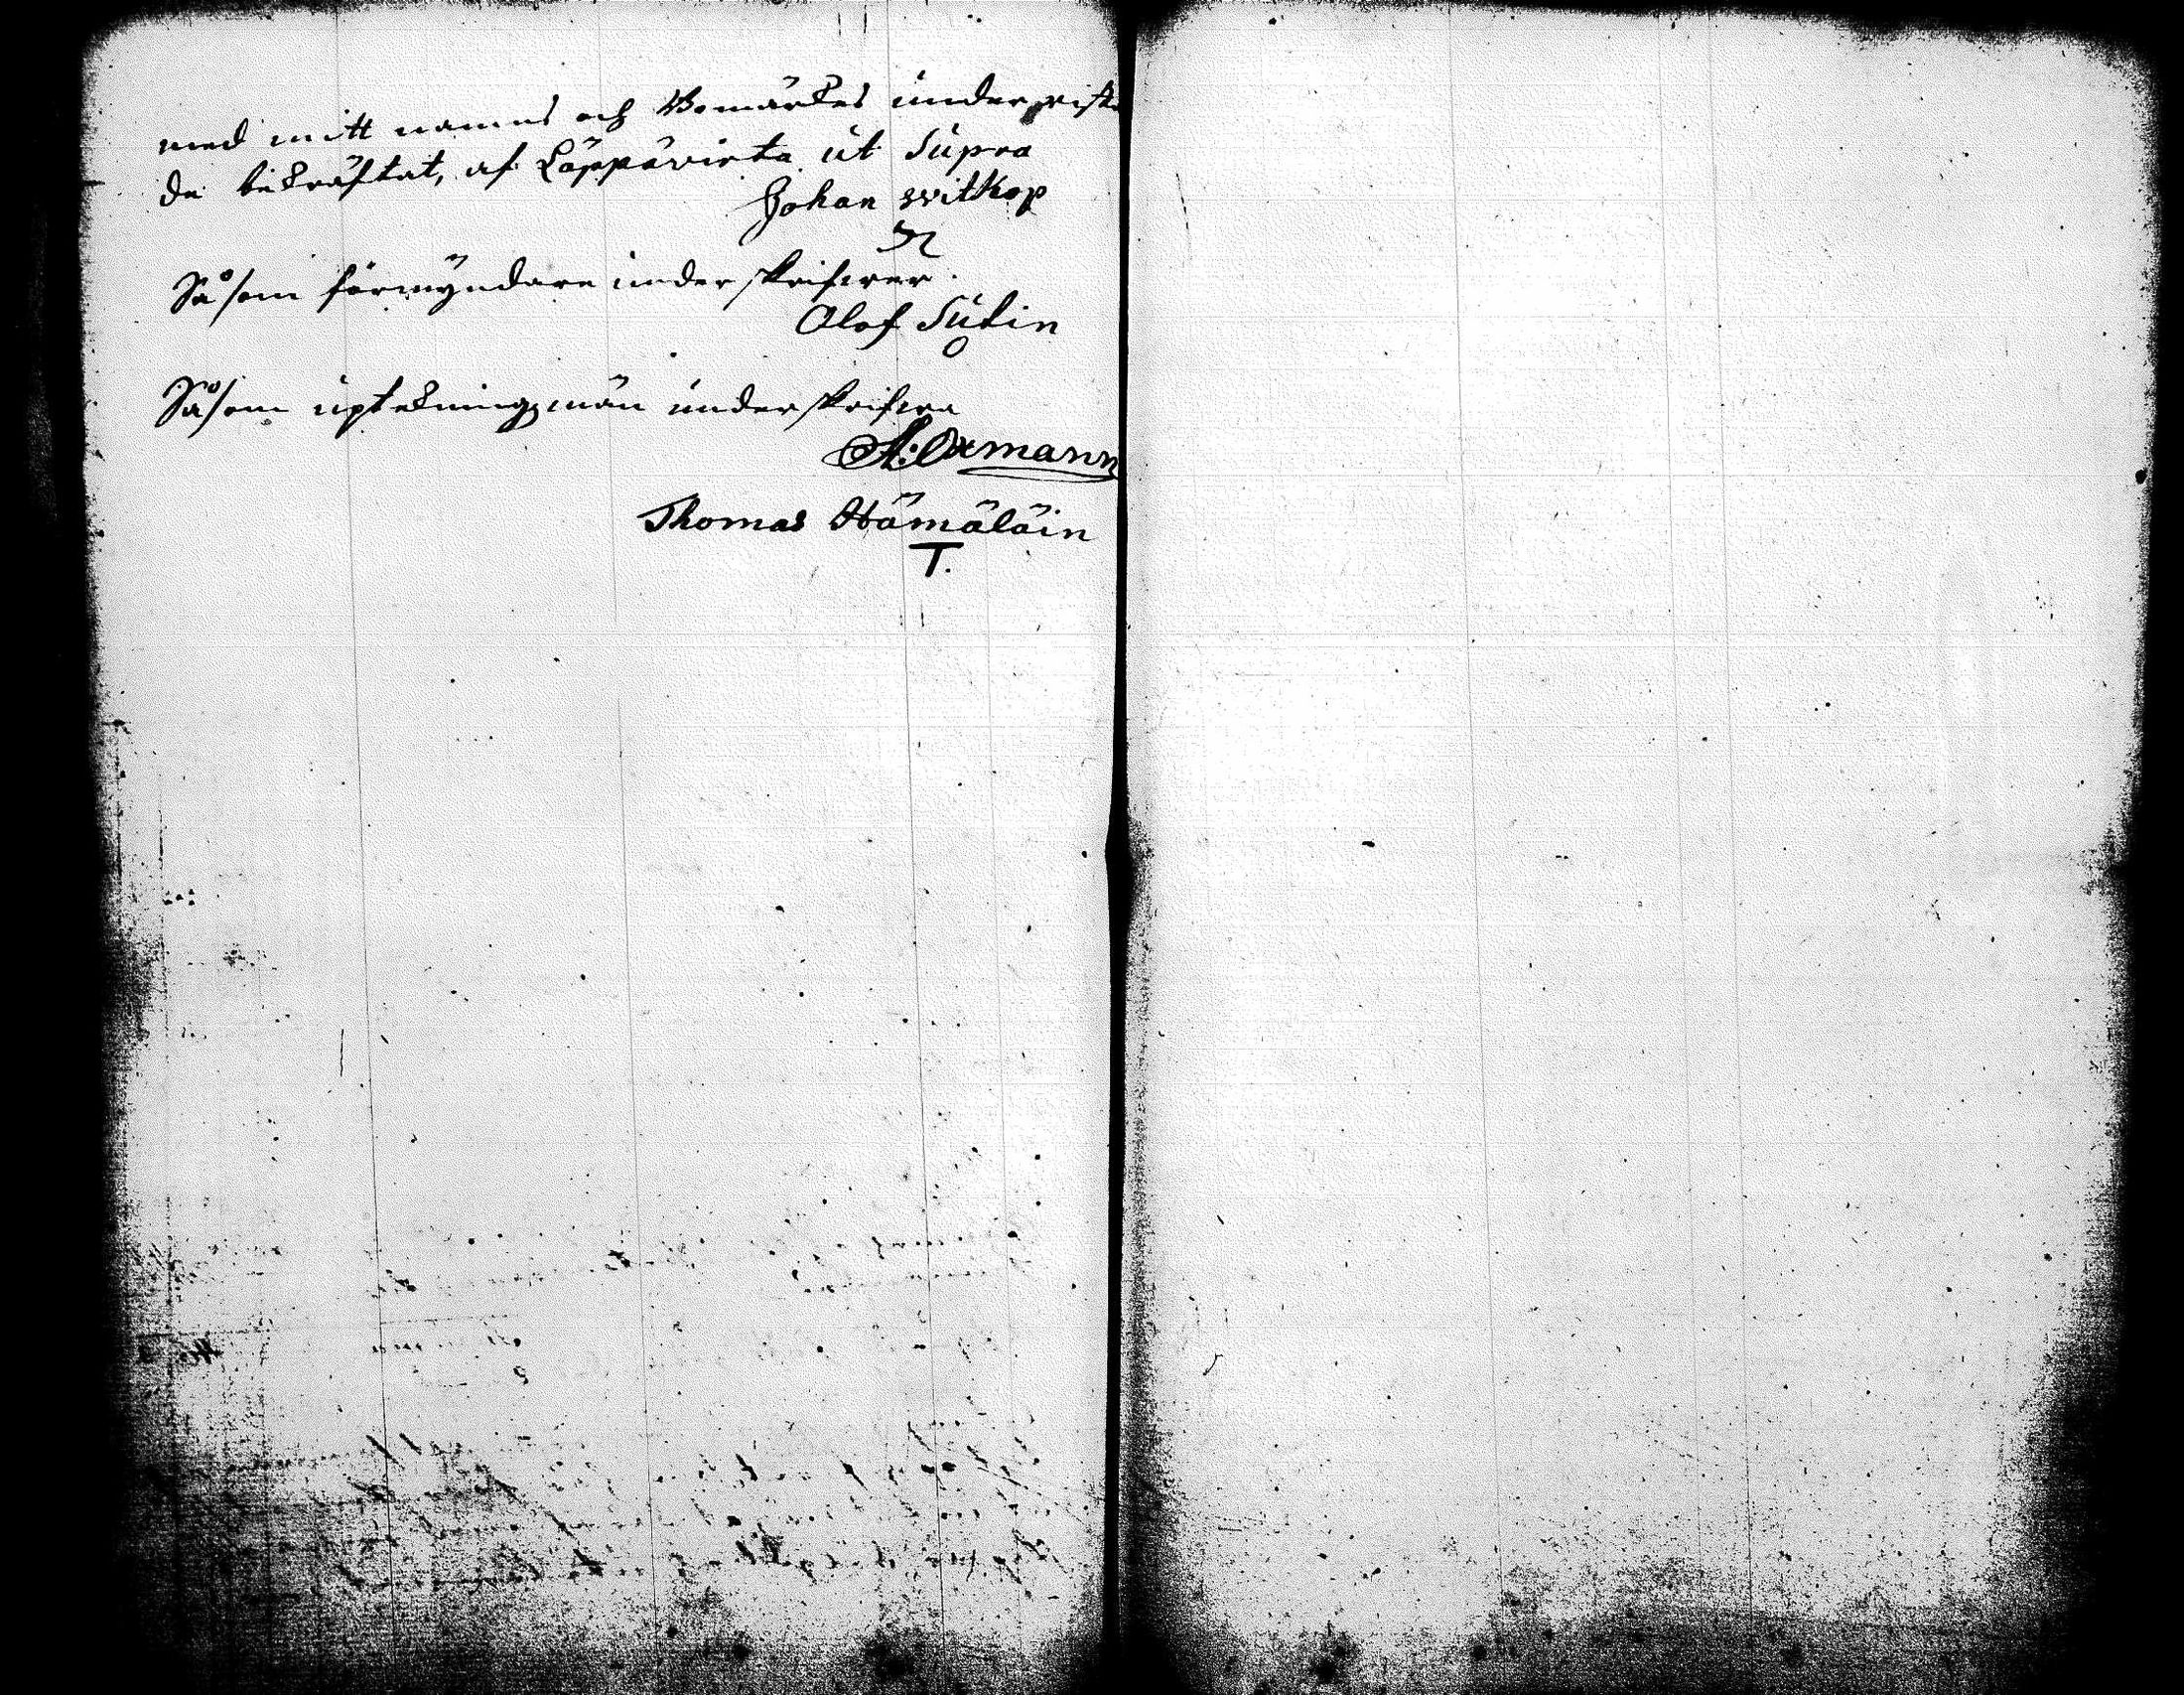 med mitt namns och Bomärkes underrista
de bekräftat, af Läppävirta ut Supra
Johan Witkop
Såsom förmyndare underskrifwer.
Olof Sutin
Såsom uptekningzmän underskrifwa
A: Oxmann
Thomas Hämäläin
T.